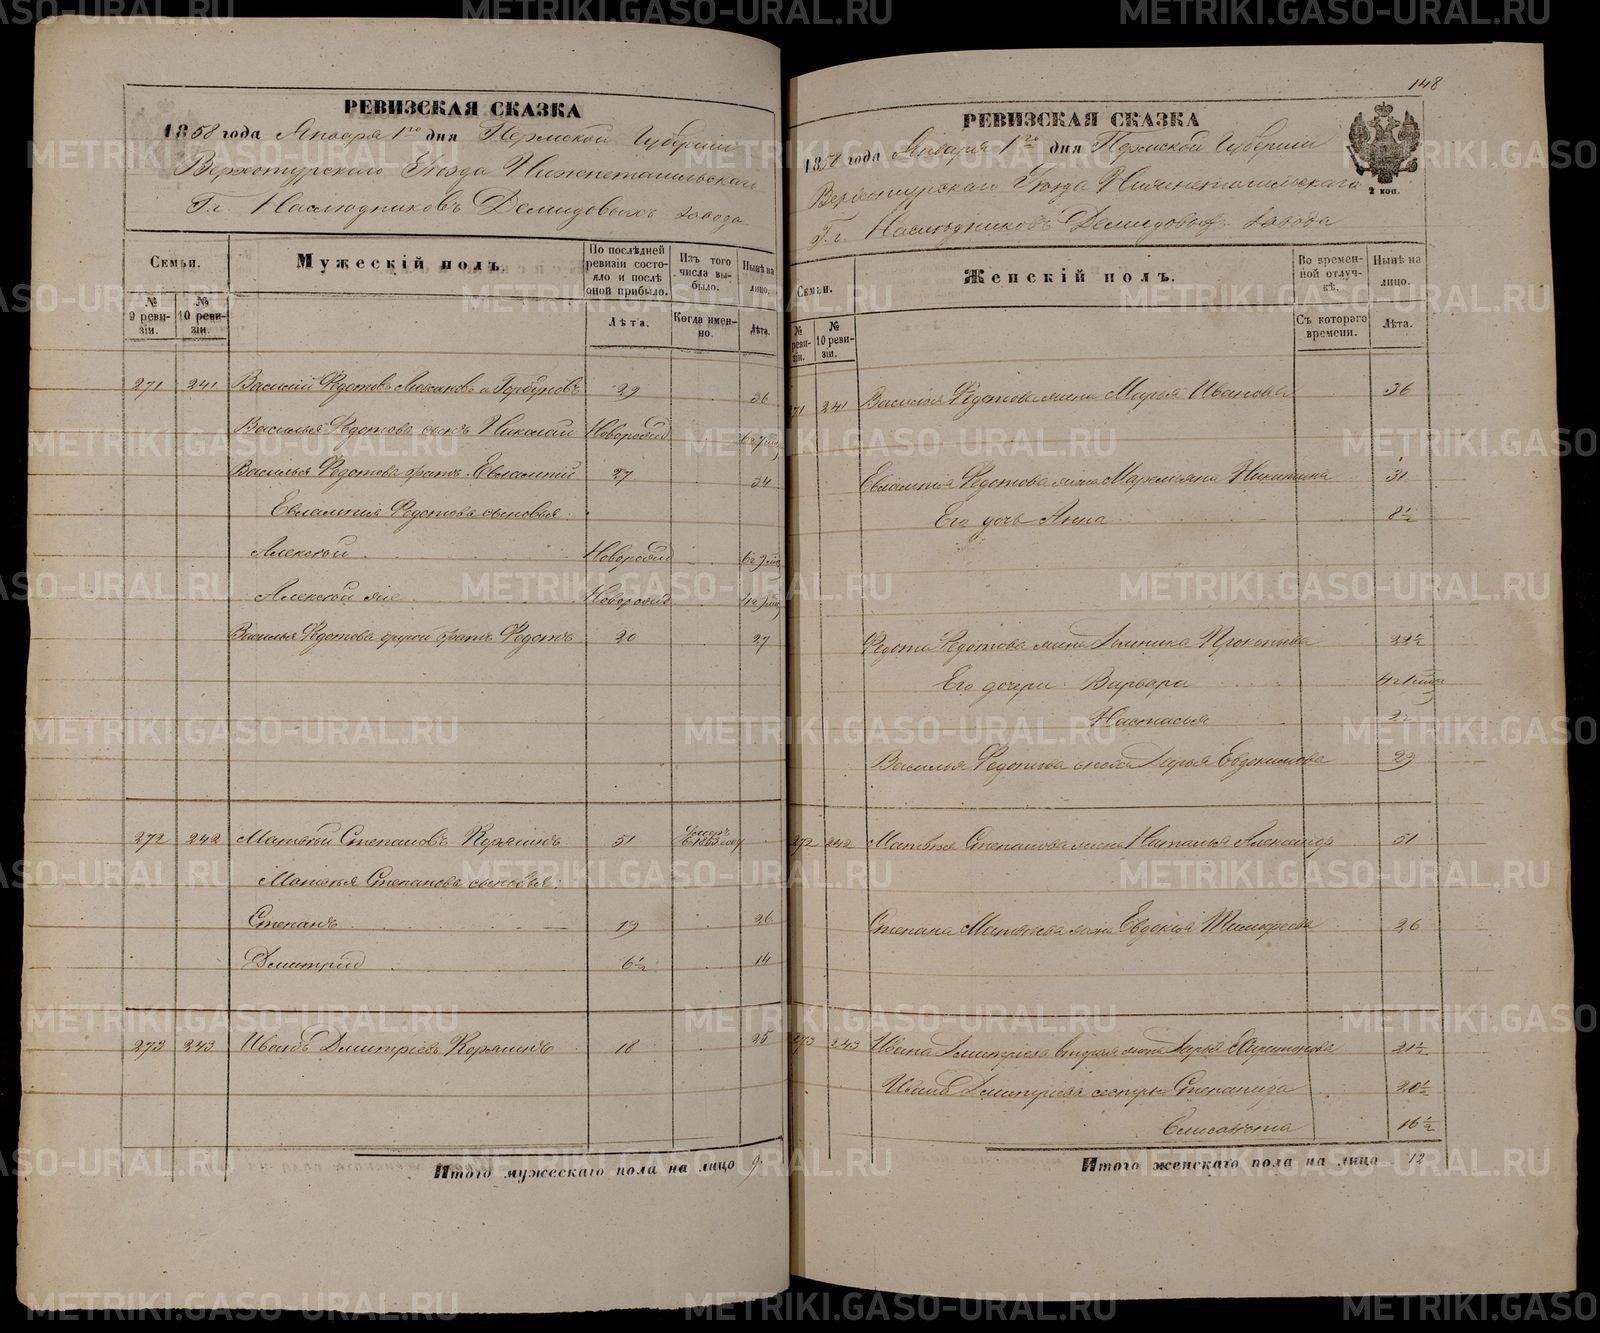 РЕВИЗСКАЯ СКАЗКА
1858 года Января 1го дня Пермской Губерніи
Верхотурского Уѣзда Нижнетагильскаго
Г.г. Наслѣдниковъ Демидовыхъ завода
Семьи.
Мужескій полъ.
По послѣдней ревизіи состояло и послѣ оной прибыло.
Изъ того числа выбыло.
Нынѣ на лицо.
№ 9 ревизіи.
№ 10 ревизіи.
Лѣта.
Когда именно.
Лѣта.
271 241 Василій Ѳедотовъ Горбуновъ 29 36
Василья Ѳедотова сынъ Николай Новорожд
Василья Ѳедотова братъ Евлампій 27 34
Евлампія Ѳедотова сыновья
Алексѣй Новорожд
Алексѣй же Новорожд
Василья Ѳедотова другой братъ Ѳедотъ 20 27
272 242 Матвѣй Степановъ Корякинъ 51
Матвѣя Степанова сыновья:
Степанъ 19 26
Дмитрій 6½ 14
273 243 Иванъ Дмитріевъ Корякинъ 18 25
Итого мужескаго пола на лицо 9.
148
РЕВИЗСКАЯ СКАЗКА
1858 года Января 1го дня Пермской Губерніи
Верхотурскаго Уѣзда Нижнетагильскаго
Г.г. Наслѣдниковъ Демидовыхъ завода
2 коп.
Семьи.
Женскій полъ.
Во временной отлучкѣ.
Нынѣ на лицо.
№ ревизіи.
№ 10 ревизіи.
Съ котораго времени.
Лѣта.
271 241 Василья Ѳедотова жена Марья Иванова 36
Евлампія Ѳедотова жена Маремьяна Никитина 31
Его дочь Анна 8½
Ѳедота Ѳедотова жена Домника Прокопьева
Его дочери: Варвара
Настасья
Василья Ѳедотова сноха Дарья Евдокимова 29
272 242 Матвѣя Степанова жена Наталья 51
Степана Матвѣева жена Евдокія Тимофеева 26
273 243 Ивана Дмитріева вторая жена Дарья 21½
Ивана Дмитріева сестры Степанида 20½
Елисавета 16½
Итого женскаго пола на лицо 12
METRIKI.GASO-URAL.RU